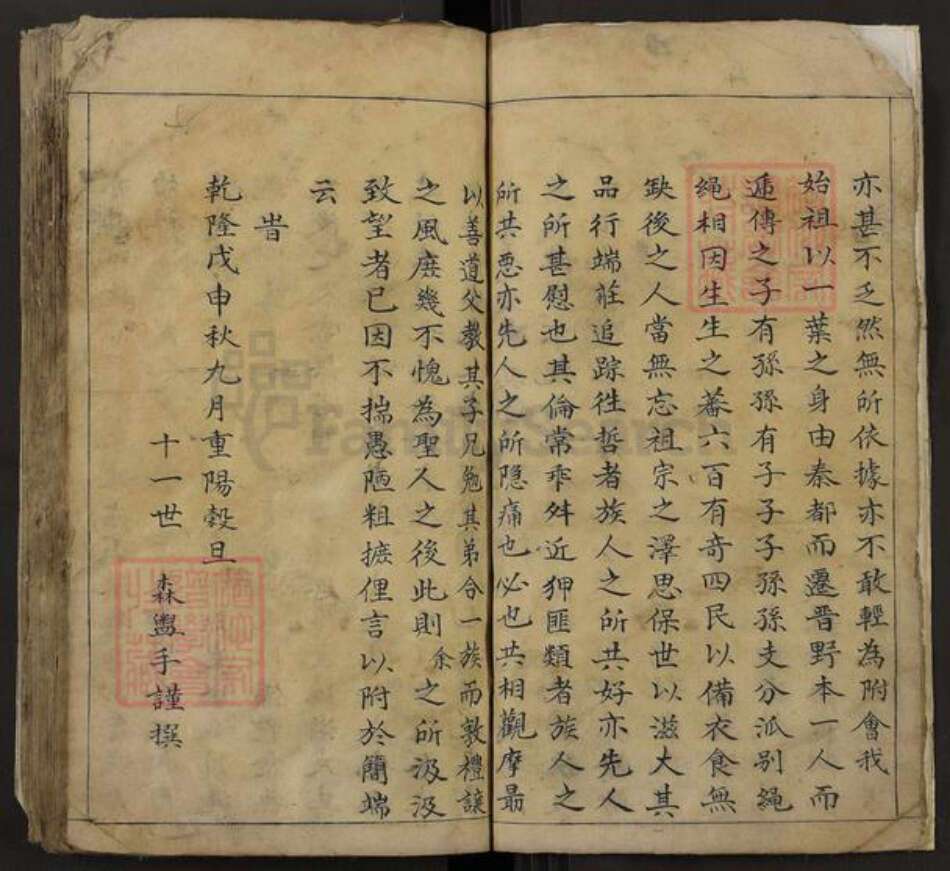 亦甚不乏然無所依據亦不敢輕為附會我
始祖以一葉之身由秦都而遷晋野本一人而
逓傳之子有孫孫有子子子孫孫支分泒别繩
绳相因生生之蕃六百有奇四民以備衣食無
缺後之人當無忘祖宗之澤思保世以滋大其
品行端莊追踪徃哲者族人之所共好亦先人
之所甚慰也其倫常乖舛近狎匪類者族人之
所共惡亦先人之所隐痛也必也共相觀摩最
以善道父教其子兄勉其弟合一族而敦禮讓
之風庻幾不愧為聖人之後此則余之所汲汲
致望者已因不揣愚陋粗摭俚言以附於簡端
云
旹
乾隆戊申秋九月重陽穀旦
十一世 森盥手謹撰
FamilySearch